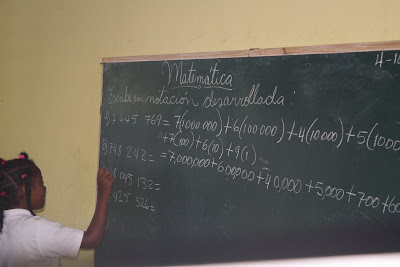 Matemática
4-10
Escribe en notación desarrollada:
7 645 769 = 7(1000 000) + 6(100 000) + 4(10 000) + 5(1000
+7(100) + 6(10) + 9(1)
= 7,000,000 + 600,000 + 40,000 + 5,000 + 700 + 60
748 242 =
045 132 =
425 526 =